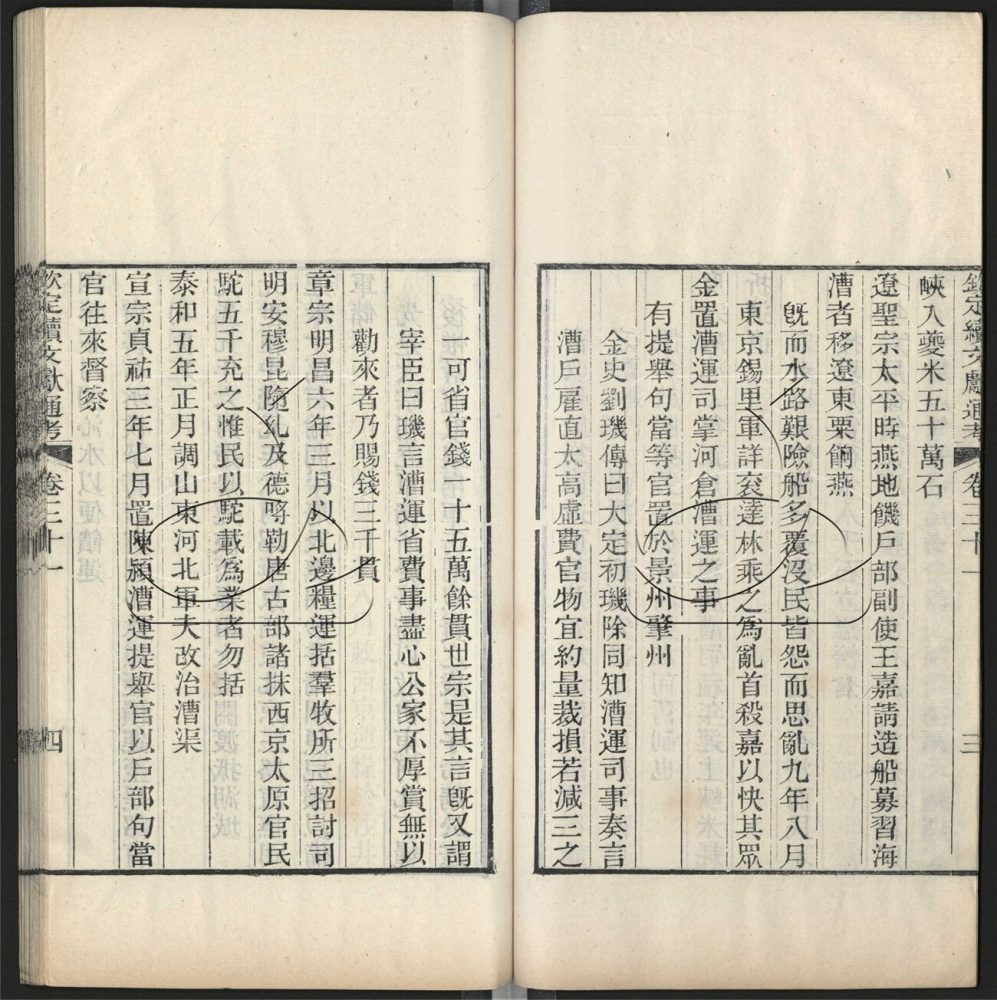 欽定續文獻通考 卷三十一 三
峽入夔米五十萬石
遼聖宗太平時燕地饑戶部副使王嘉請造船募習海
漕者移遼東粟餉燕
旣而水路艱險船多覆沒民皆怨而思亂九年八月
東京錫里軍詳衮達林乘之爲亂首殺嘉以快其眾
金置漕運司掌河倉漕運之事
有提舉句當等官置於景州肇州
金史劉璣傳曰大定初璣除同知漕運司事奏言
漕戶雇直太高虛費官物宜約量裁損若減三之
一可省官錢一十五萬餘貫世宗是其言旣又謂
宰臣曰璣言漕運省費事盡心公家不厚賞無以
勸來者乃賜錢三千貫
章宗明昌六年三月以北邊糧運括羣牧所三招討司
明安穆昆隨糺及德哷勒唐古部諸抹西京太原官民
駝五千充之惟民以駝載爲業者勿括
泰和五年正月調山東河北軍夫改治漕渠
宣宗貞祐三年七月置陳潁漕運提舉官以戶部句當
官往來督察
欽定續文獻通考 卷三十一 四